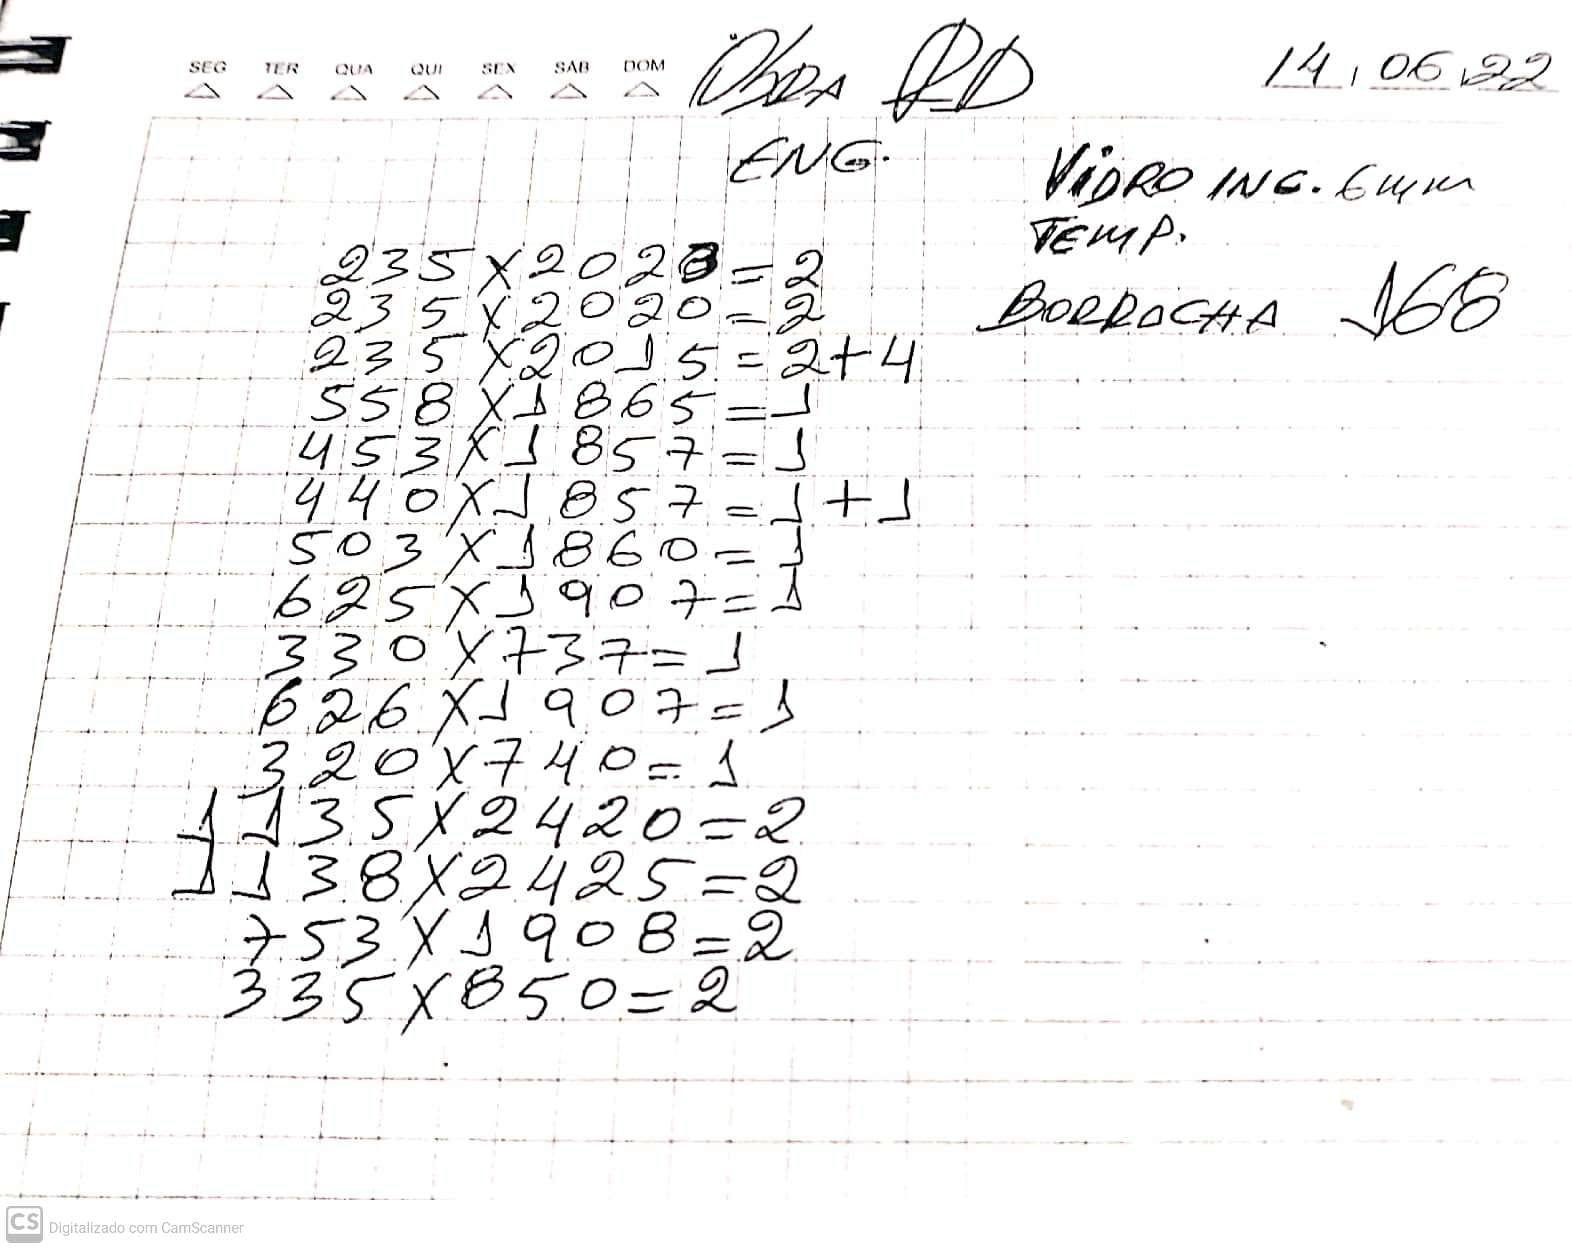 SEG TER QUA QUI SEX SÁB DOM
Obra RD
14,06,22
ENG.
VIDRO INC. 6mm
TEMP.
BORRACHA 168
235x2028=2
235x2020=2
235x2015=2+4
558x1865=1
453x1857=1
440x1857=1+1
503x1860=1
625x1907=1
330x737=1
626x1907=1
320x740=1
1135x2420=2
1138x2425=2
753x1908=2
335x850=2
CS Digitalizado com CamScanner